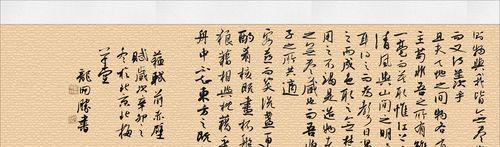 則物與我皆無盡也
而又何羨乎
且夫天地之間物各有
主苟非吾之所有雖
一毫而莫取惟江上之
清風與山間之明月
耳得之而為聲目遇
之而成色取之無禁
用之不竭是造物者
之無盡藏也而吾與
子之所共適
客喜而笑洗盞更
酌肴核既盡杯盤
狼藉相與枕藉乎
舟中不知東方之既
蘇軾前赤壁
賦歲次辛卯之
冬於北京北梅
草堂
龍開勝書